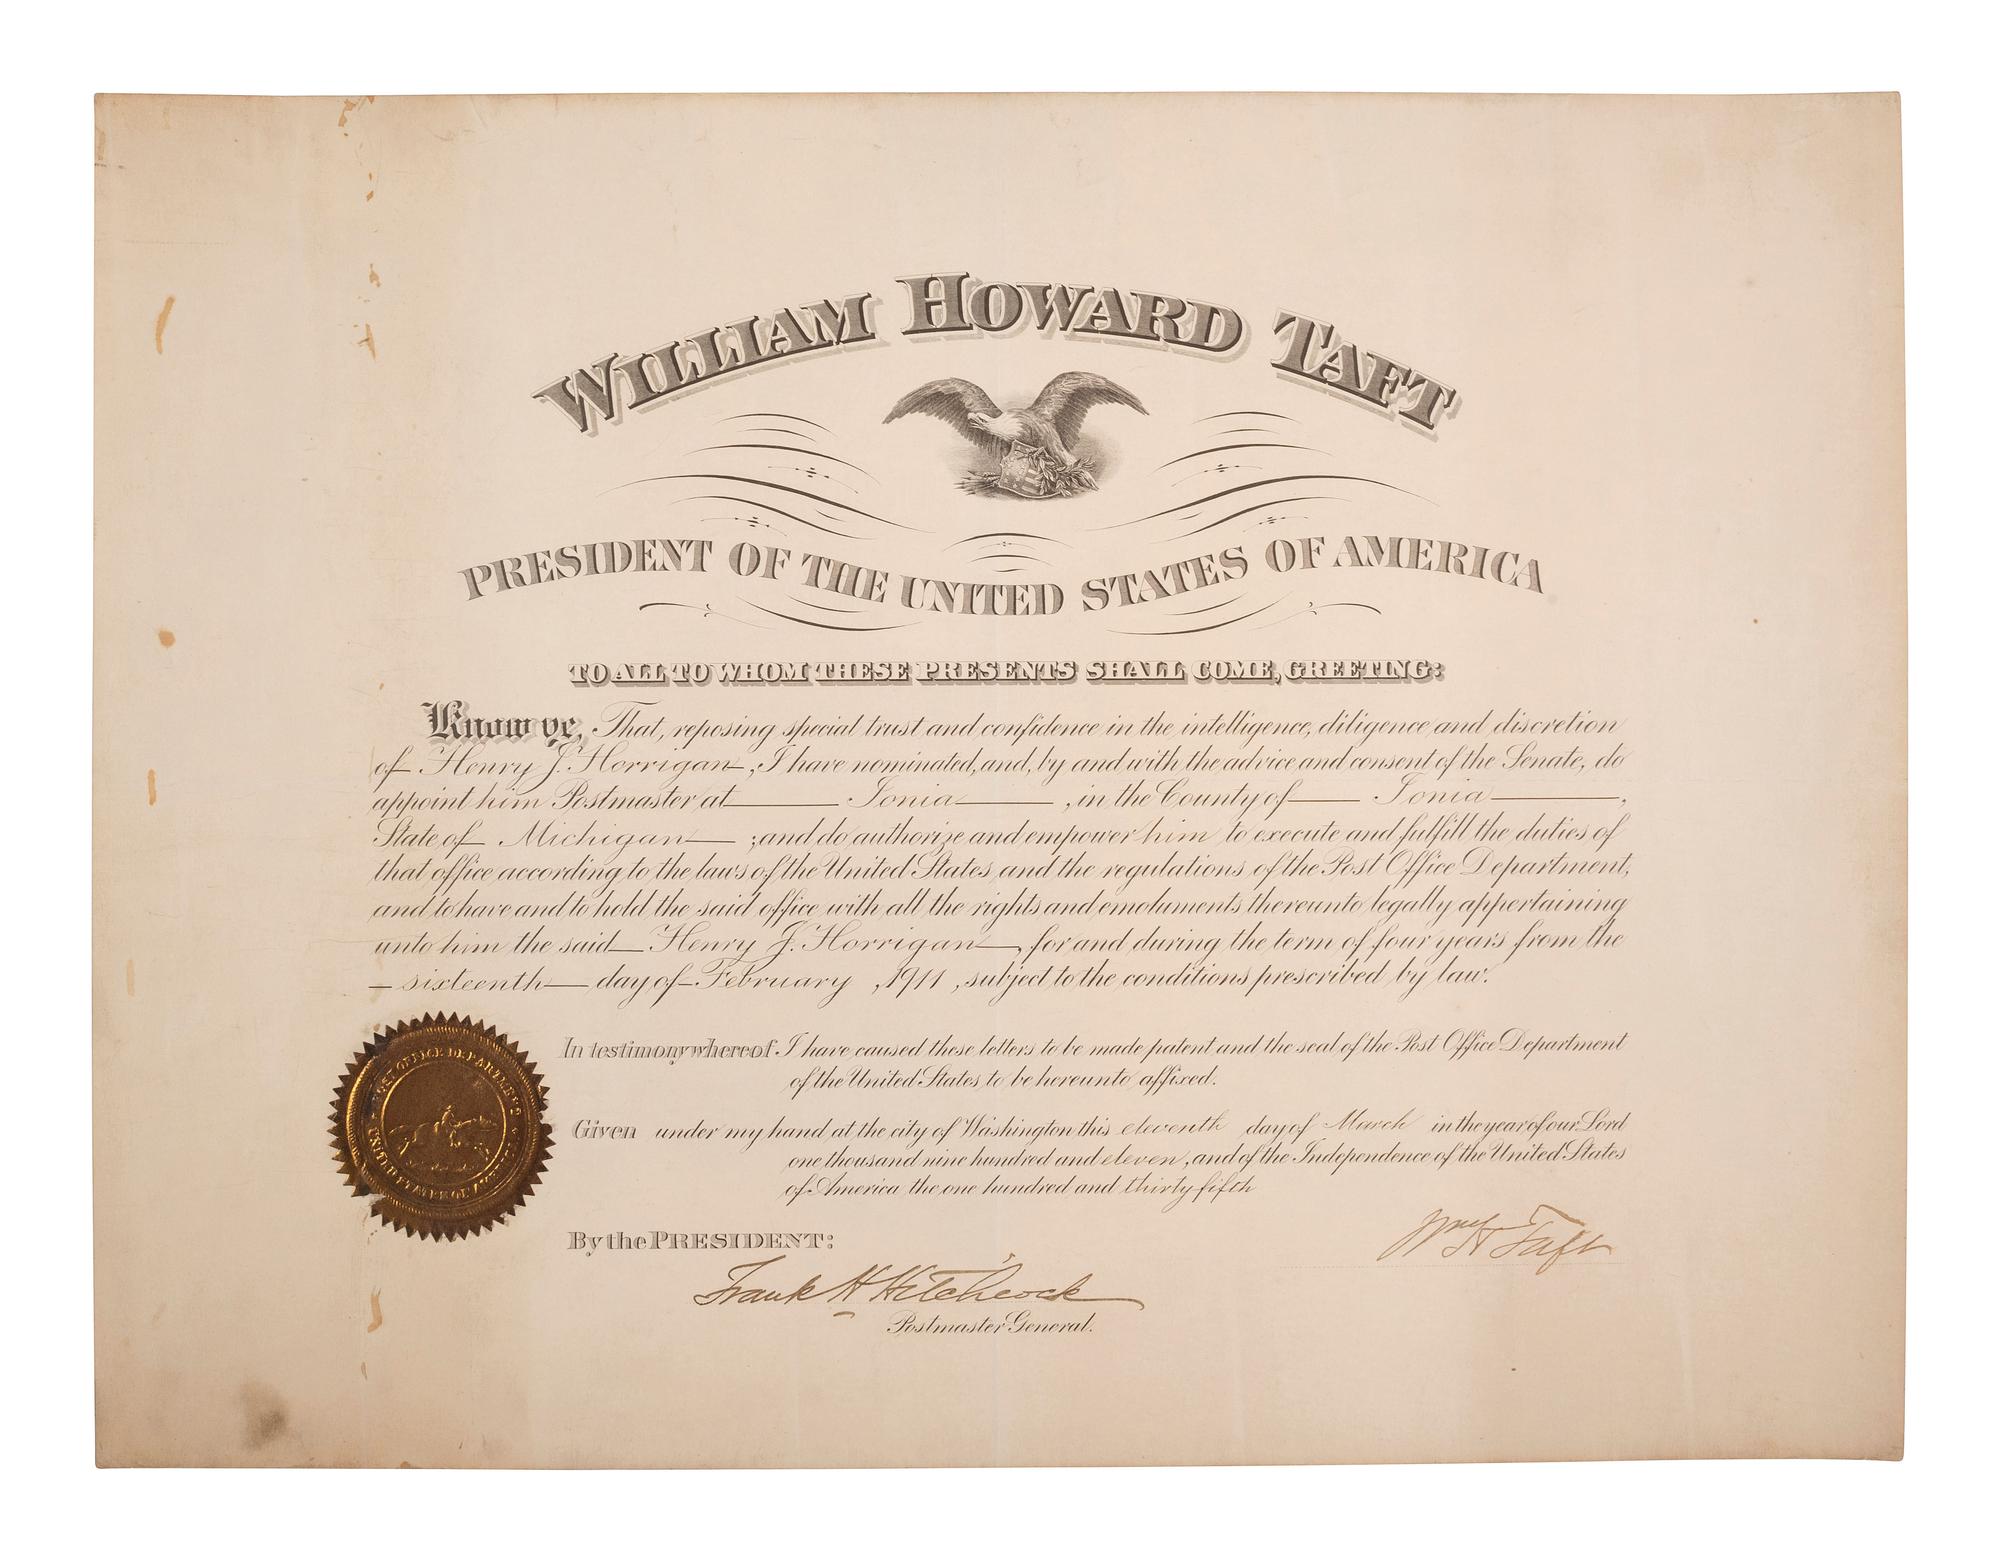 WILLIAM HOWARD TAFT
PRESIDENT OF THE UNITED STATES OF AMERICA
TO ALL TO WHOM THESE PRESENTS SHALL COME, GREETING:
Know ye, That, reposing special trust and confidence in the intelligence, diligence and discretion
of Henry J. Horrigan, I have nominated, and, by and with the advice and consent of the Senate, do
appoint him Postmaster at Ionia, in the County of Ionia,
State of Michigan; and do authorize and empower him to execute and fulfill the duties of
that office according to the laws of the United States and the regulations of the Post Office Department,
and to have and to hold the said office with all the rights and emoluments thereunto legally appertaining
unto him the said Henry J. Horrigan, for and during the term of four years from the
sixteenth day of February, 1911, subject to the conditions prescribed by law.
In testimony whereof I have caused these letters to be made patent and the seal of the Post Office Department
of the United States to be hereunto affixed.
Given under my hand at the city of Washington this eleventh day of March in the year of our Lord
one thousand nine hundred and eleven, and of the Independence of the United States
of America the one hundred and thirty fifth
POST OFFICE DEPARTMENT
UNITED STATES OF AMERICA
By the PRESIDENT:
Wm H Taft
Frank H Hitchcock
Postmaster General.